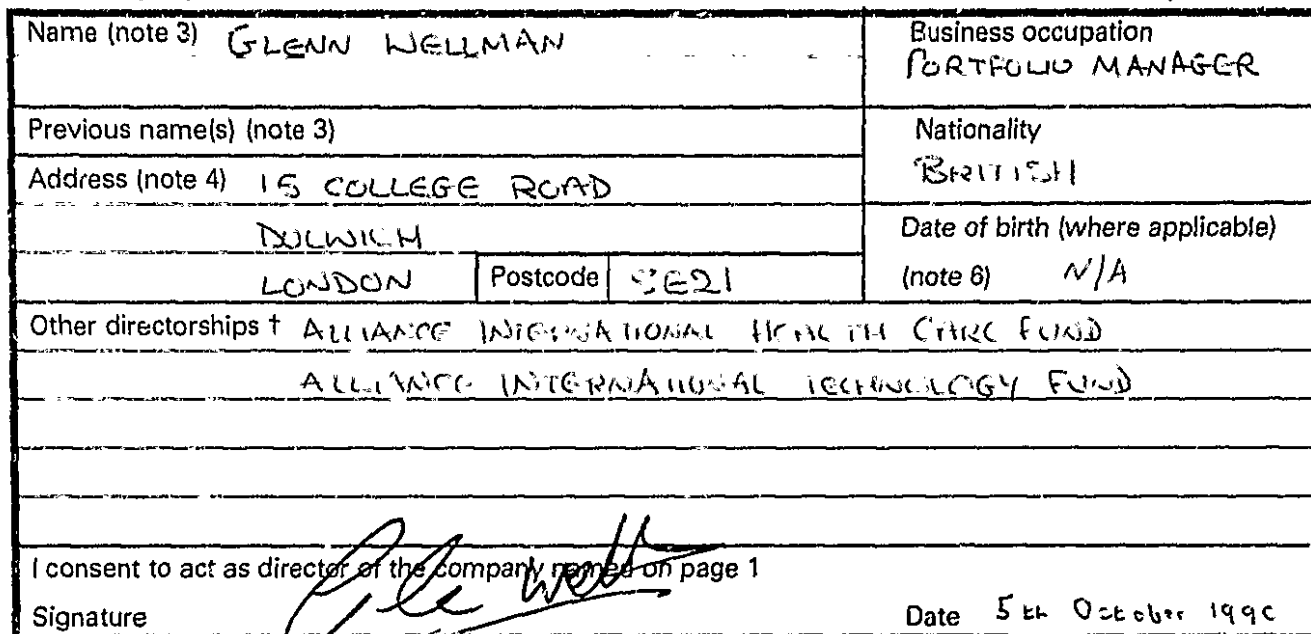 Name (note 3) GLENN WELLMAN
Business occupation
PORTFOLIO MANAGER
Previous name(s) (note 3)
Nationality
BRITISH
Address (note 4) 15 COLLEGE ROAD
DULWICH
Date of birth (where applicable)
LONDON Postcode SE21
(note 6) N/A
Other directorships † ALLIANCE INTERNATIONAL HEALTH CARE FUND
ALLIANCE INTERNATIONAL TECHNOLOGY FUND
I consent to act as director of the company named on page 1
Signature
Date 5th October 1990